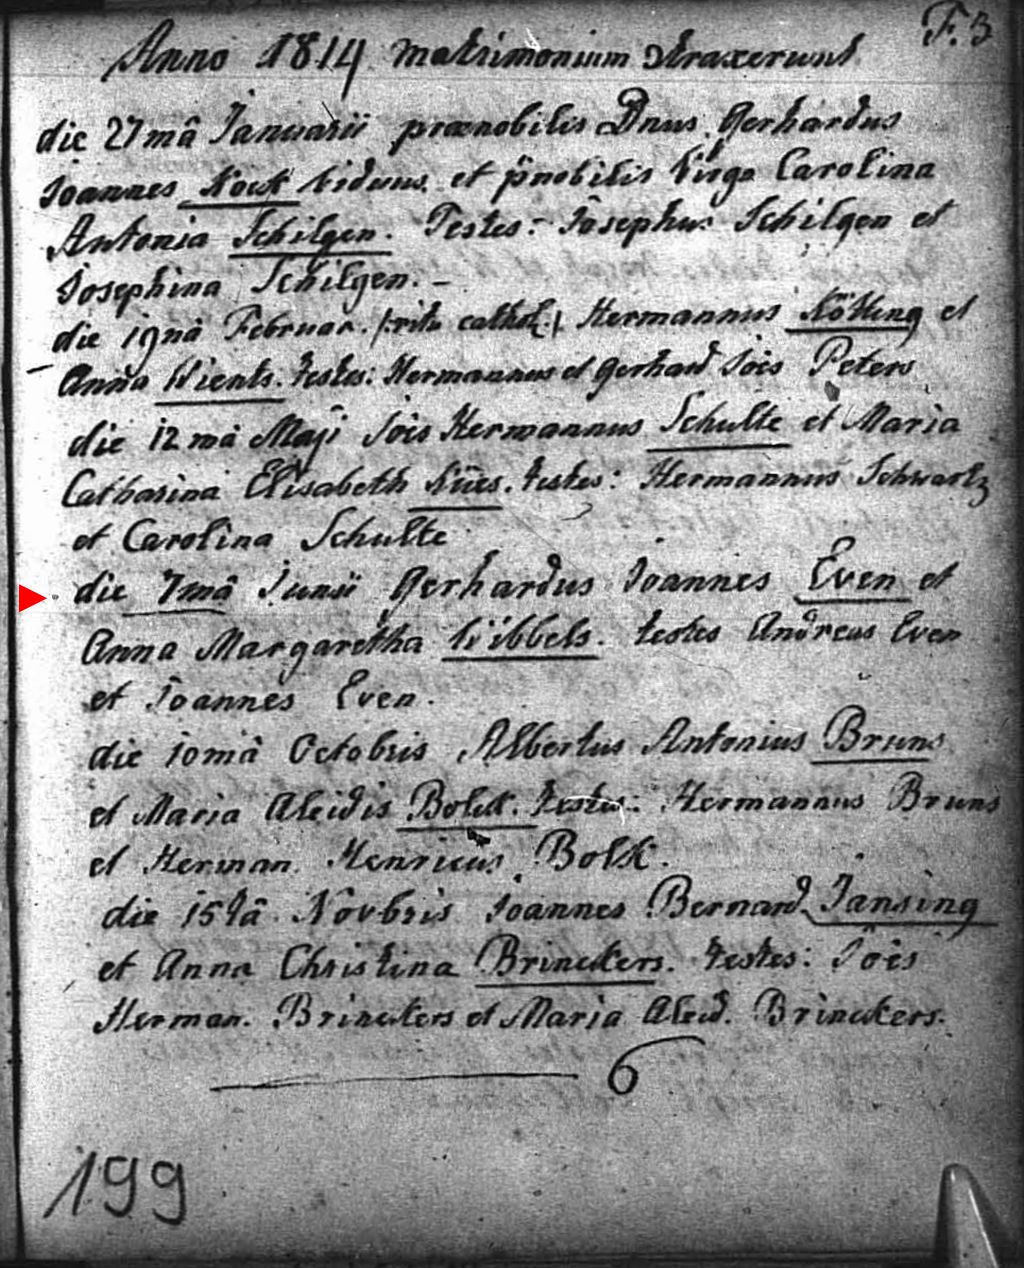 F. 3
Anno 1814 matrimonium ɔtraxerunt
die 27mâ Januarii prænobilis Dnus Gerhardus
Joannes viduus et p̈nobilis Virgo Carolina
Antonia Schilgen. Testes: Josephus Schilgen et
Josephina Schilgen. –
die 19nâ Februar. /ritu cathol./ Hermannus Kötting et
Anna Wients. testes: Hermannus et Gerhard Jois Peters
die 12mâ Maji Jois Hermannus Schulte et Maria
Catharina Elisabeth Küës. testes: Hermannus Schwartz
et Carolina Schulte
die 7mâ Junii Gerhardus Joannes Even et
Anna Margaretha Wibbels. testes Andreas Even
et Joannes Even.
die 10mâ Octobris Albertus Antonius Bruns
et Maria Aleidis Bolck. testes: Hermannus Bruns
et Herman Henricus Bolk.
die 15tâ Nôvbris Joannes Bernard Jansing
et Anna Christina Brinckers. testes: Jôis
Herman. Brinckers et Maria Aleid. Brinckers.
6
199